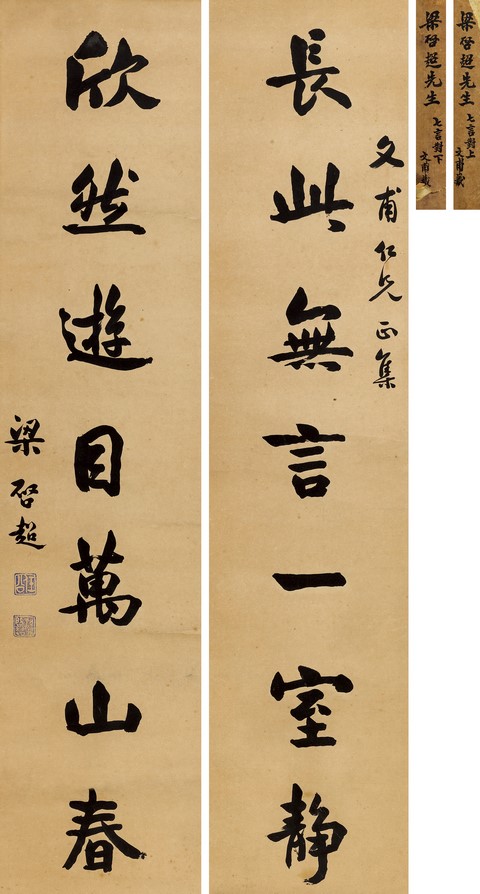 梁启超先生
七言對上
文甫藏
梁启超先生
七言對下
文甫藏
文甫仁兄正集
長此無言一室静
欣然遊目萬山春
梁启超